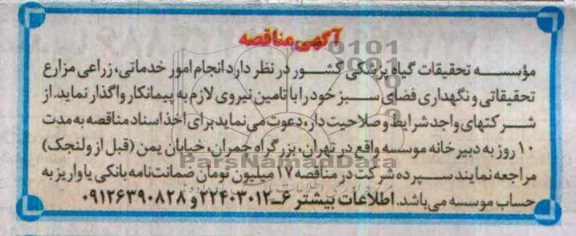 آگهی مناقصه
مؤسسه تحقیقات گیاه پزشکی کشور در نظر دارد انجام امور خدماتی، زراعی مزارع
تحقیقاتی و نگهداری فضای سبز خود را با تامین نیروی لازم به پیمانکار واگذار نماید. از
شرکتهای واجد شرایط و صلاحیت دار، دعوت می نماید برای اخذ اسناد مناقصه به مدت
۱۰ روز به دبیرخانه موسسه واقع در تهران، بزرگراه چمران، خیابان یمن (قبل از ولنجک)
مراجعه نمایند سپرده شرکت در مناقصه ۱۷ میلیون تومان ضمانت‌نامه بانکی یا واریز به
حساب موسسه می‌باشد. اطلاعات بیشتر ۶-۲۲۴۰۳۰۱۲ و ۰۹۱۲۶۳۹۰۸۲۸
ParsNamadData